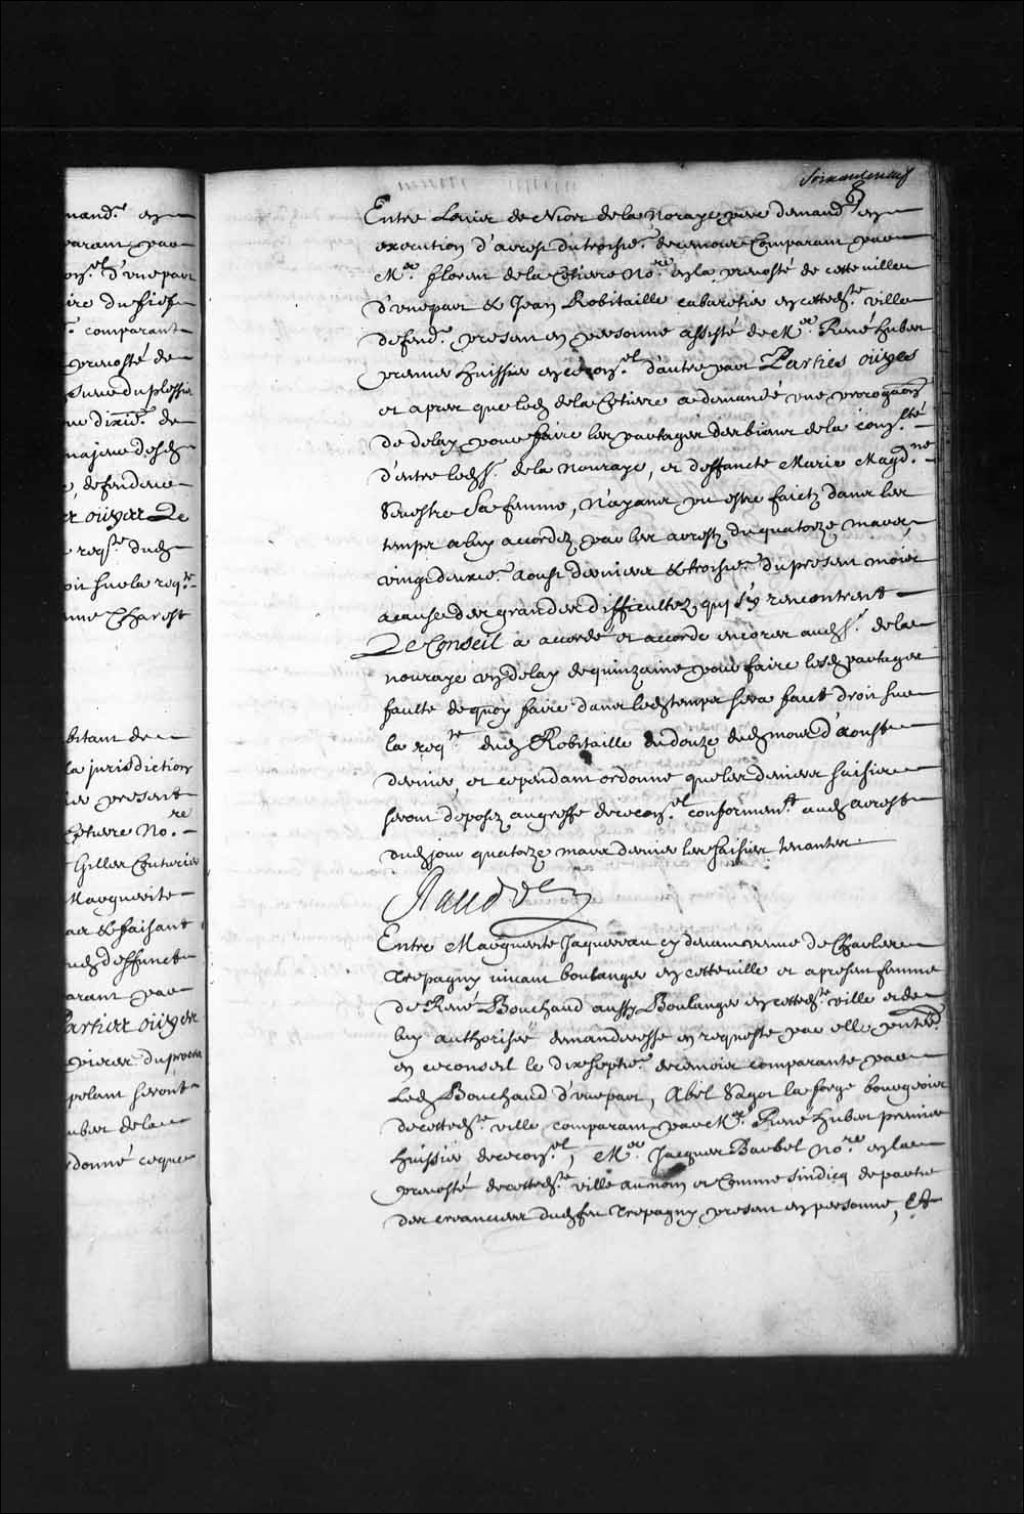 nand.r en
parant par
con.el d'une part
ire du fief
comparant
prevosté de
Sieur duplessis
ne dixie.e de
majeure desd
, defendeur
es ouyes Le
req.te dud
oit sur la req.te
nne Charest
bitant de
la jurisdiction
ier present
Cetiere No.re
Gilles Couturier
Marguerite
et faisant
dud deffunct
arant par
Parties ouyes
pieces du proces
pelant seront
ubert de la
donné ce que
Soixante neuf
Entre Louis de Niort de la Noraye demand.r en
execution d'arrest du troisie.e de ce mois Comparant par
M.re florent de la Cetiere No.re en la prevosté de cette ville
d'une part et Jean Robitaille cabaretier en cetted.te ville
defend.r present en personne assisté de M.re René hubert
premier huissier en ce con.el d'autre part Parties ouyes
et apres que led de la Cetiere a demandé une prorogaon
de delay pour faire les partages des biens de la com.té
d'entre led s.r de la nouraye, et deffuncte Marie Magd.ne
Sevestre Sa femme, n'ayant pu estre faictz dans les
temps a luy accordez par les arrestz du quatorze mars,
vingt deuxie.e aoust derniers et troisie.e du present mois
a cause des grandes difficultez qui s'y rencontrent
Le Conseil a accordé et accorde encores aud s.r de la
nouraye un delay de quinzaine pour faire lesd partages
faulte de quoy faire dans led temps sera faict droit sur
la req.te dud Robitaille du douze dud mois d'Aoust
dernier, et cependant ordonne que les deniers saisis
seront deposez au greffe de ce con.el conformem.t aud arrest
dud jour quatorze mars dernier les saisies tenantes.
Raudot
Entre Marguerite Jaquereau cy devant veuve de Charles
Trepagny vivant boulanger en cette ville et a present femme
de René Bouchaud aussy Boulanger en cetted.te ville et de
luy authorisée demanderesse en requeste par elle pntée
en ce conseil le dix septie.e de ce mois comparante par
Led Bouchaud d'une part, Abel Sagot la forge bourgeois
de cetted.te ville comparant par M.re René hubert premier
huissier de ce con.el, M.re Jacques Barbel No.re en la
prevosté de cetted.te ville au nom et Comme sindicq de partie
des creanciers dud feu Trepagny present en personne, Et